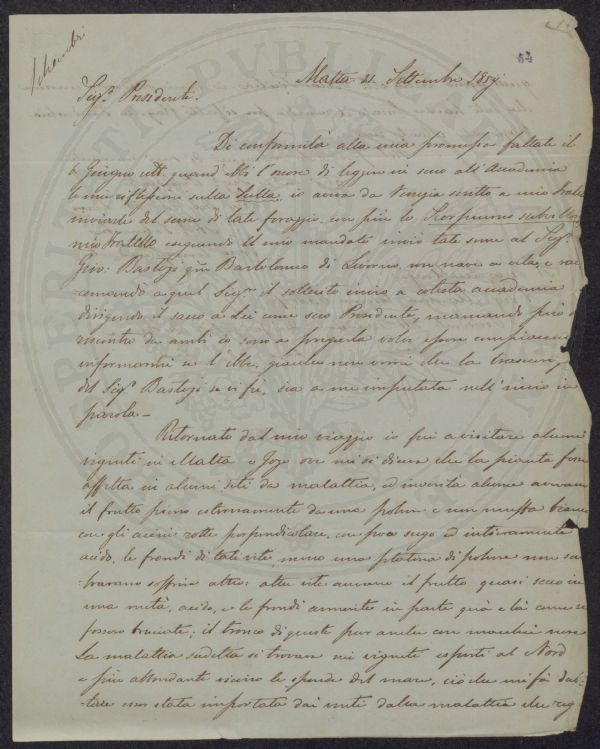 Schembri
54
Malta 11 Settembre 1859
Sigr. Presidente.
Di conformità alla mia promessa fattale il
6 Giugno ult. quand' ebbi l'onore di leggere in seno all'Accademia
le mie riflessioni sulla Sulla, io aveva da Venezia scritto a mio fratello
inviarle del seme di tale foraggio, con più lo
mio fratello eseguendo il mio mandato inviò tale seme al Sigr.
Gio: Bastogi qm Bartolomeo di Livorno, e rac-
comandò a quel Sigr. il sollecito invio a cotesta accademia
dirigendo il sacco a Lei come suo Presidente, mancando però
riscontro da ambi io sono a pregarla voler essere compiacente
informarmi se l'ebbe, giacchè non vorrei che la trascuraz
del Sigr. Bastogi se vi fù, sia a me imputata nell'
parola_
Ritornato dal mio viaggio io fui a visitare alcuni
vigneti in Malta e Gozo ove mi si diceva che la pianta fosse
affetta in alcuni siti da malattia, ed in verità alcune avevano
il frutto pieno esternamente da una polvere e una muffa bianca
con gli acini rotti perpendicolare, con poco sugo ed interamente
acido, le frondi di tali vite, meno una di polvere non sem
bravano soffrire altro: altre vite avevano il frutto quasi secco in
una metà, acido, e le frondi annerite in parte quà e là come se
fossero bruciate; il tronco di queste pur anche con macchie nere
La malattia sudetta si trovava nei vigneti esposti al Nord
e più abbondante vicino le sponde del mare, ciò che mi fà dubi-
tare esser stata importata dai venti dalla malattia che reg